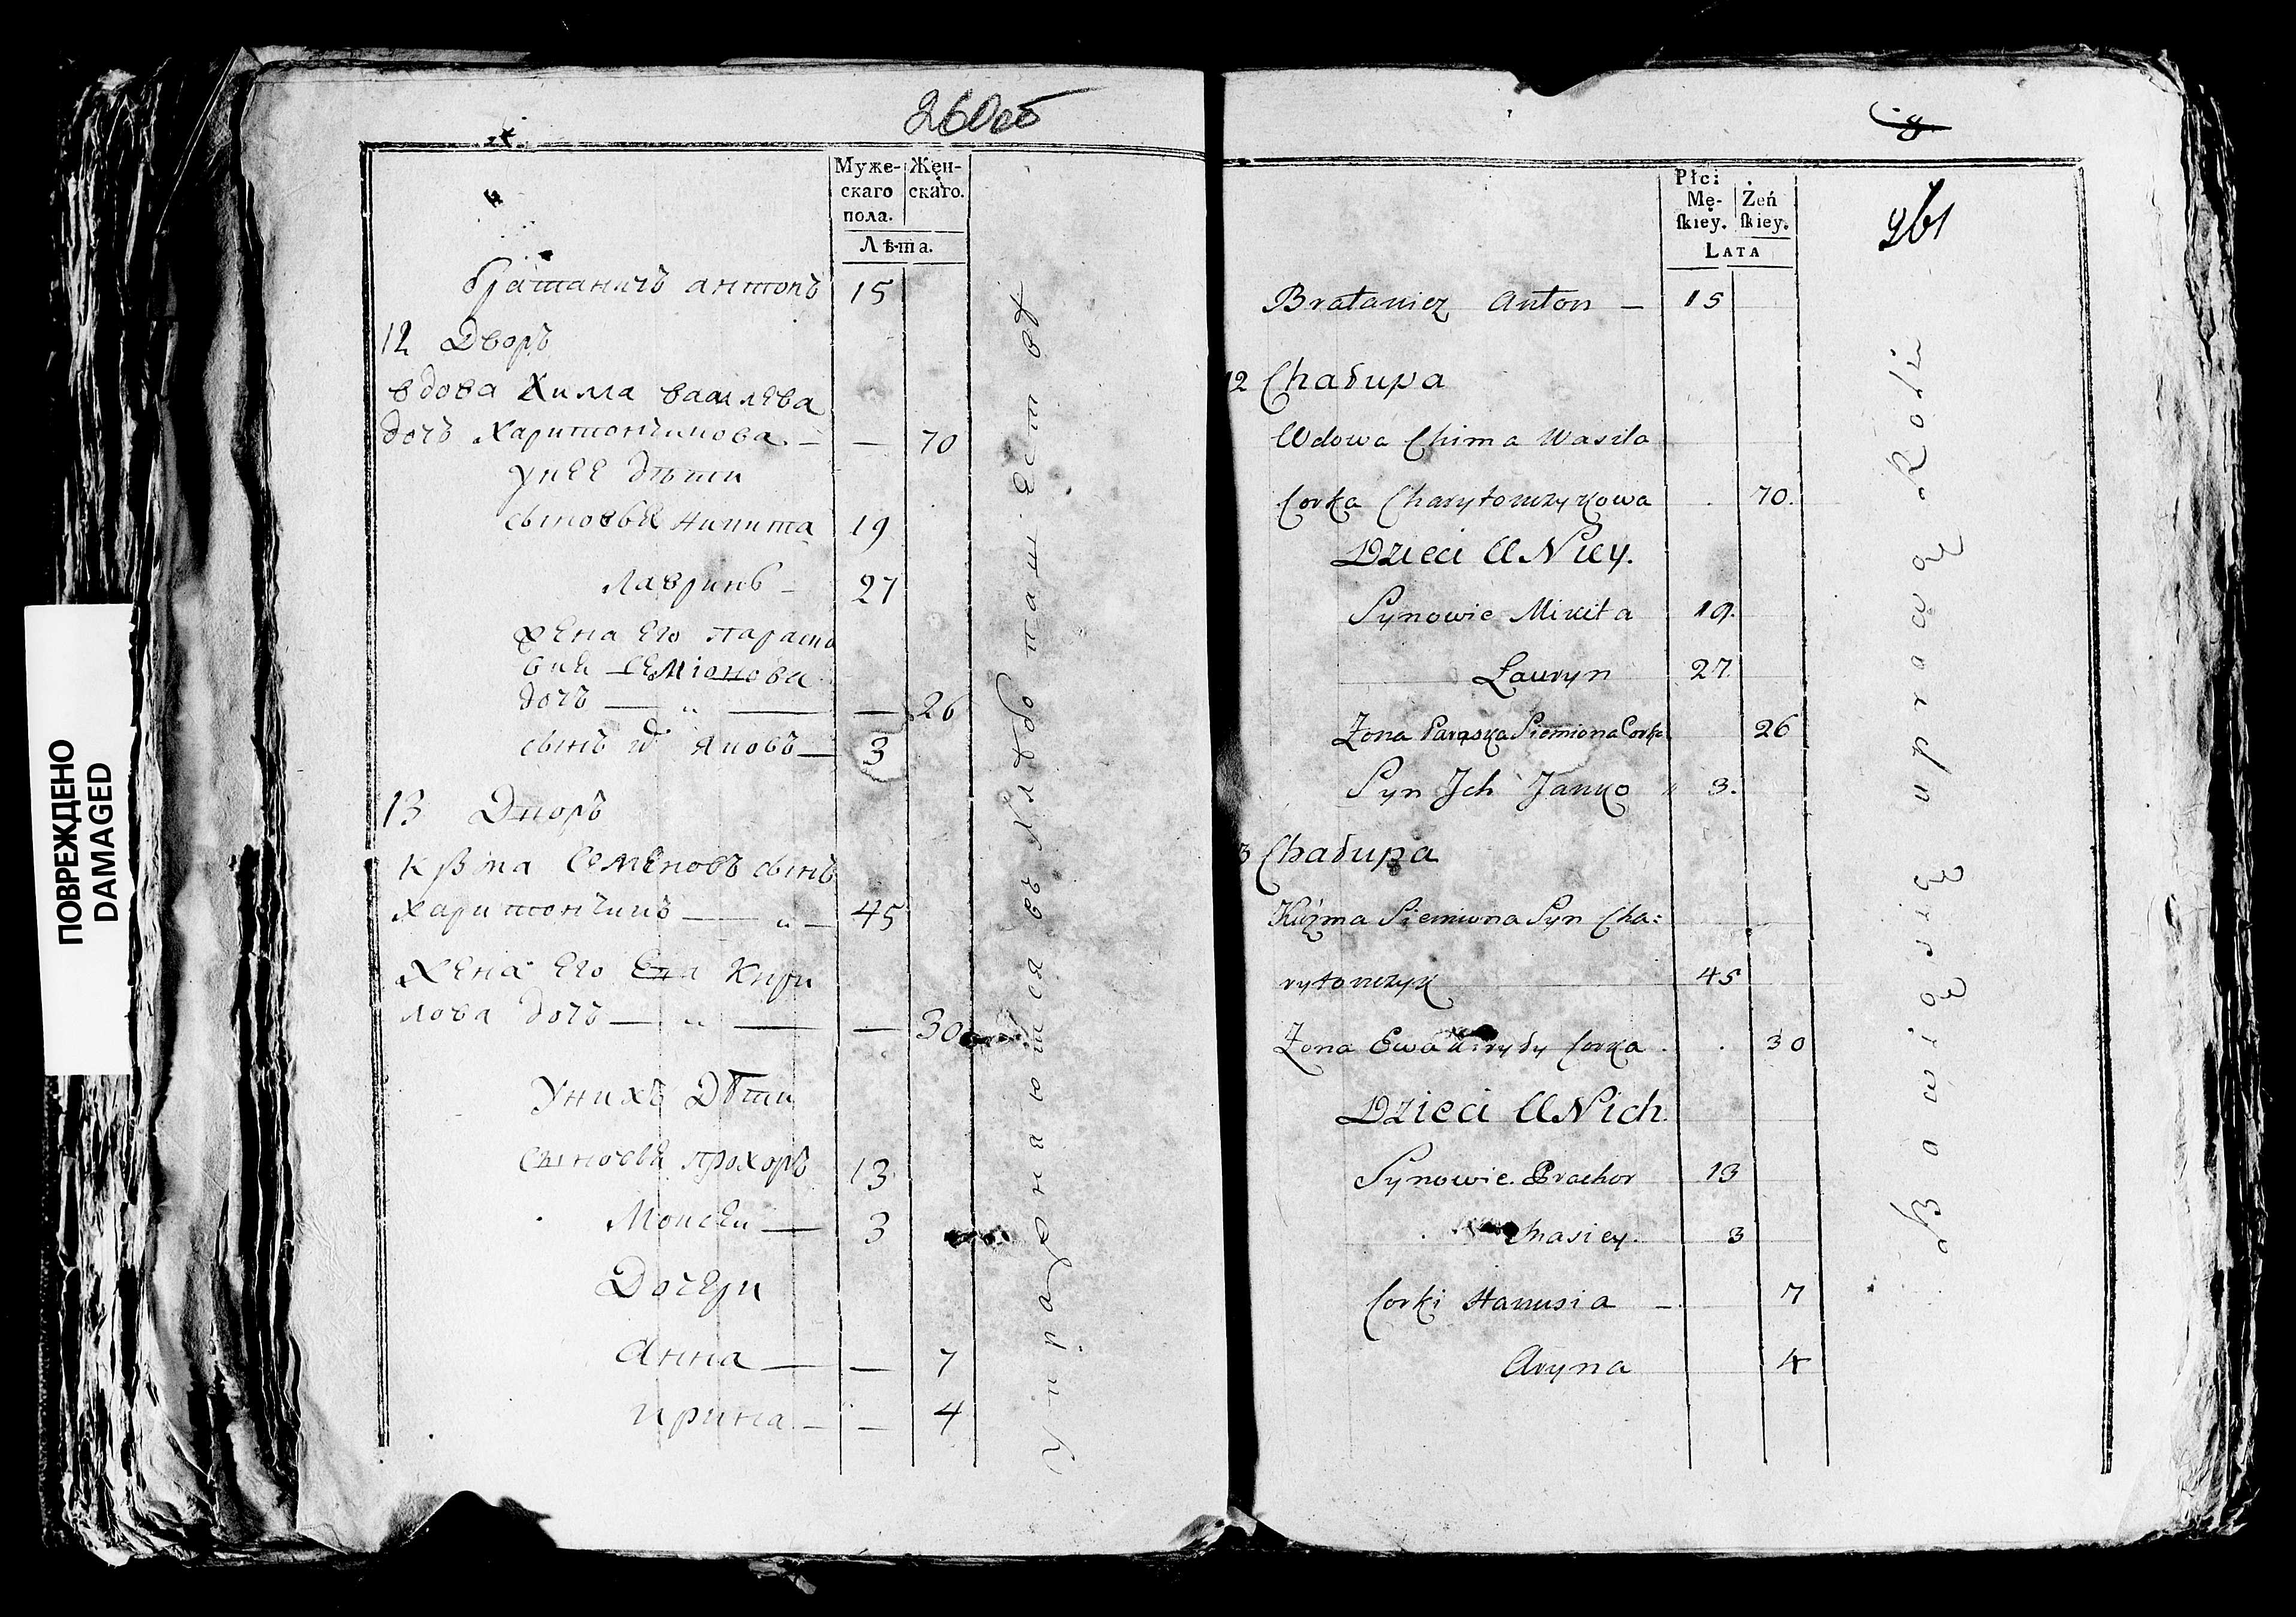 260об
Муже-
скаго
пола.
Жен-
скаго.
Лѣта.
братаничъ антонъ 15
12 Дворъ
вдова Хима васил ева
дочъ Харитончикова — — 70
у нее дѣти
сыновья никита 19
Лавринъ — 27
жена его параско
вия Семіонова
дочъ — „ — — 26
сынъ и Яковъ — 3
13 Дворъ
Кузма Семеновъ сынъ
Харитончикъ — „ — 45
жена Его Ева Кири
лова дочъ — „ — — 30
У нихъ Дѣти
Сыновья прохоръ 13
Моисеи — 3
Дочери
Анна — — 7
ирина — — 4
Упражняются въ хлѣбопашествѣ
ПОВРЕЖДЕНО
DAMAGED
8
261
Płci
Mę-
ſkiey.
Żeń
ſkiey.
LATA
Brataniez Anton — 15
12 Chałupa
Wdowa Chima Wasila
Corka Charytonczykowa . 70.
Dzieci U Niey.
Synowie Mikita 19.
Lauryn 27.
Zona Paraska Siemiona Corka 26
Syn Jch Janko „ 3.
3 Chałupa
Kuźma Siemiona Syn Cha:
rytonczyk 45
Zona Ewa Kiryły Corka . . 30
Dzieci U Nich.
Synowie Prochor 13
Masiey. 3
Corki Hanusia — 7
Aryna 4
Bawią się uprawą Roli